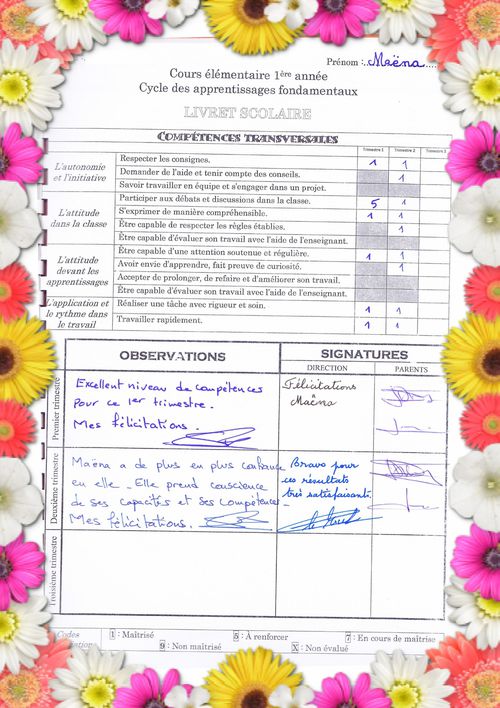 Prénom : Maëna
Cours élémentaire 1ère année
Cycle des apprentissages fondamentaux
LIVRET SCOLAIRE
COMPÉTENCES TRANSVERSALES
Trimestre 1 Trimestre 2 Trimestre 3
L'autonomie et l'initiative
Respecter les consignes. 1 1
Demander de l'aide et tenir compte des conseils. 1
Savoir travailler en équipe et s'engager dans un projet. 1
L'attitude dans la classe
Participer aux débats et discussions dans la classe. 5 1
S'exprimer de manière compréhensible. 1 1
Être capable de respecter les règles établies. 1
Être capable d'évaluer son travail avec l'aide de l'enseignant.
L'attitude devant les apprentissages
Être capable d'une attention soutenue et régulière. 1 1
Avoir envie d'apprendre, fait preuve de curiosité. 1
Accepter de prolonger, de refaire et d'améliorer son travail.
Être capable d'évaluer son travail avec l'aide de l'enseignant.
L'application et le rythme dans le travail
Réaliser une tâche avec rigueur et soin. 1 1
Travailler rapidement. 1 1
OBSERVATIONS
SIGNATURES
DIRECTION PARENTS
Premier trimestre
Excellent niveau de compétences
pour ce 1er trimestre.
Mes félicitations.
Félicitations
Maëna
Deuxième trimestre
Maëna a de plus en plus confiance
en elle. Elle prend conscience
de ses capacités et ses compétences.
Mes félicitations.
Bravo pour
ces résultats
très satisfaisants.
Troisième trimestre
Codes
1 : Maîtrisé 5 : À renforcer 7 : En cours de maîtrise
9 : Non maîtrisé X : Non évalué